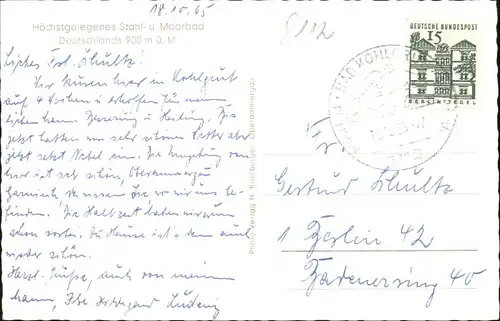 18.10.65
Höchstgelegenes Stahl- u. Moorbad
Deutschlands 900 m ü. M
Liebes Frl. Schultz!
Wir kuren hier in Kohlgrub
auf 4 Wochen u. erhoffen für meinen
lieben Mann Besserung u. Heilung. Bis
jetzt hatten wir sehr schönes Wetter aber
jetzt setzt Nebel ein. Die Umgebung von
hier ist sehr schön, Oberammergau
Garmisch da wissen Sie wo wir uns be-
finden. Die Halbzeit haben wir nun
schon vorbei. Zu Hause ist's dann auch
wieder schön.
Herzl. Grüße, auch von meinem
Mann, Ihre Hildegard Ludwig
Photo-Verlag H. Oberammergau
DEUTSCHE BUNDESPOST
15
BERLIN-TEGEL
BAD KOHLGRUB
Gertrud Schultz
1 Berlin 42
Badenerring 40